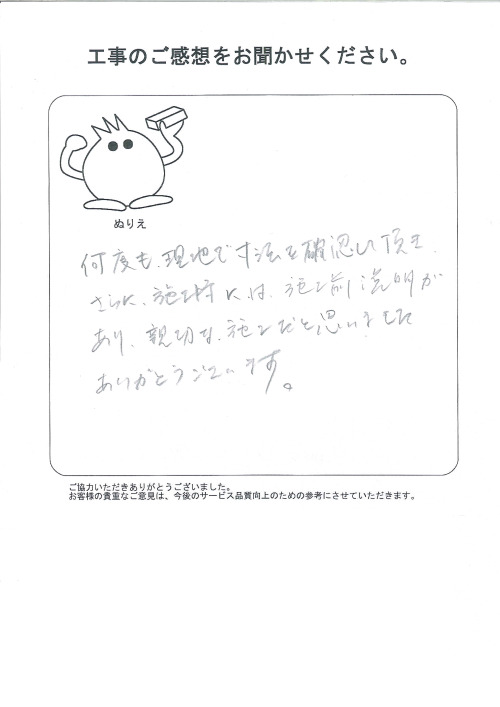 工事のご感想をお聞かせください。
ぬりえ
何度も、現地で寸法を確認して頂き、
さらに、施工時には、施工前説明が
あり、親切な、施工だと思いました
ありがとうございます。
ご協力いただきありがとうございました。
お客様の貴重なご意見は、今後のサービス品質向上のための参考にさせていただきます。